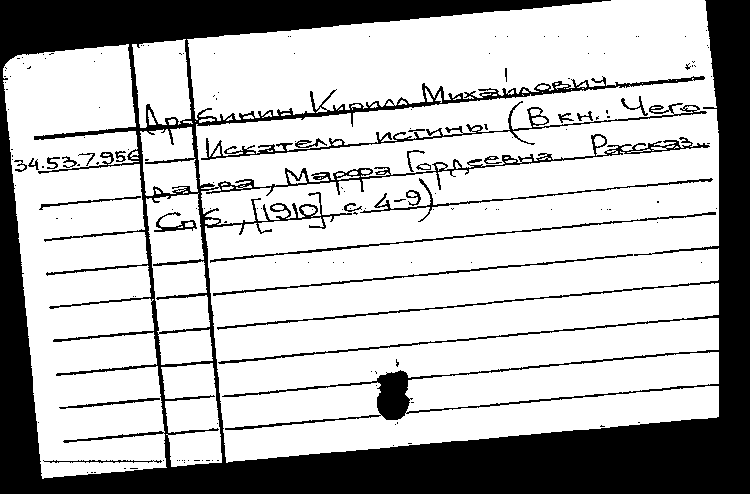 Дрябинин, Кирилл Михайлович.
34.53.7.956. Искатель истины (В кн.: Чего-
даева, Марфа Гордеевна. Рассказ..
Спб., [1910], с. 4-9)